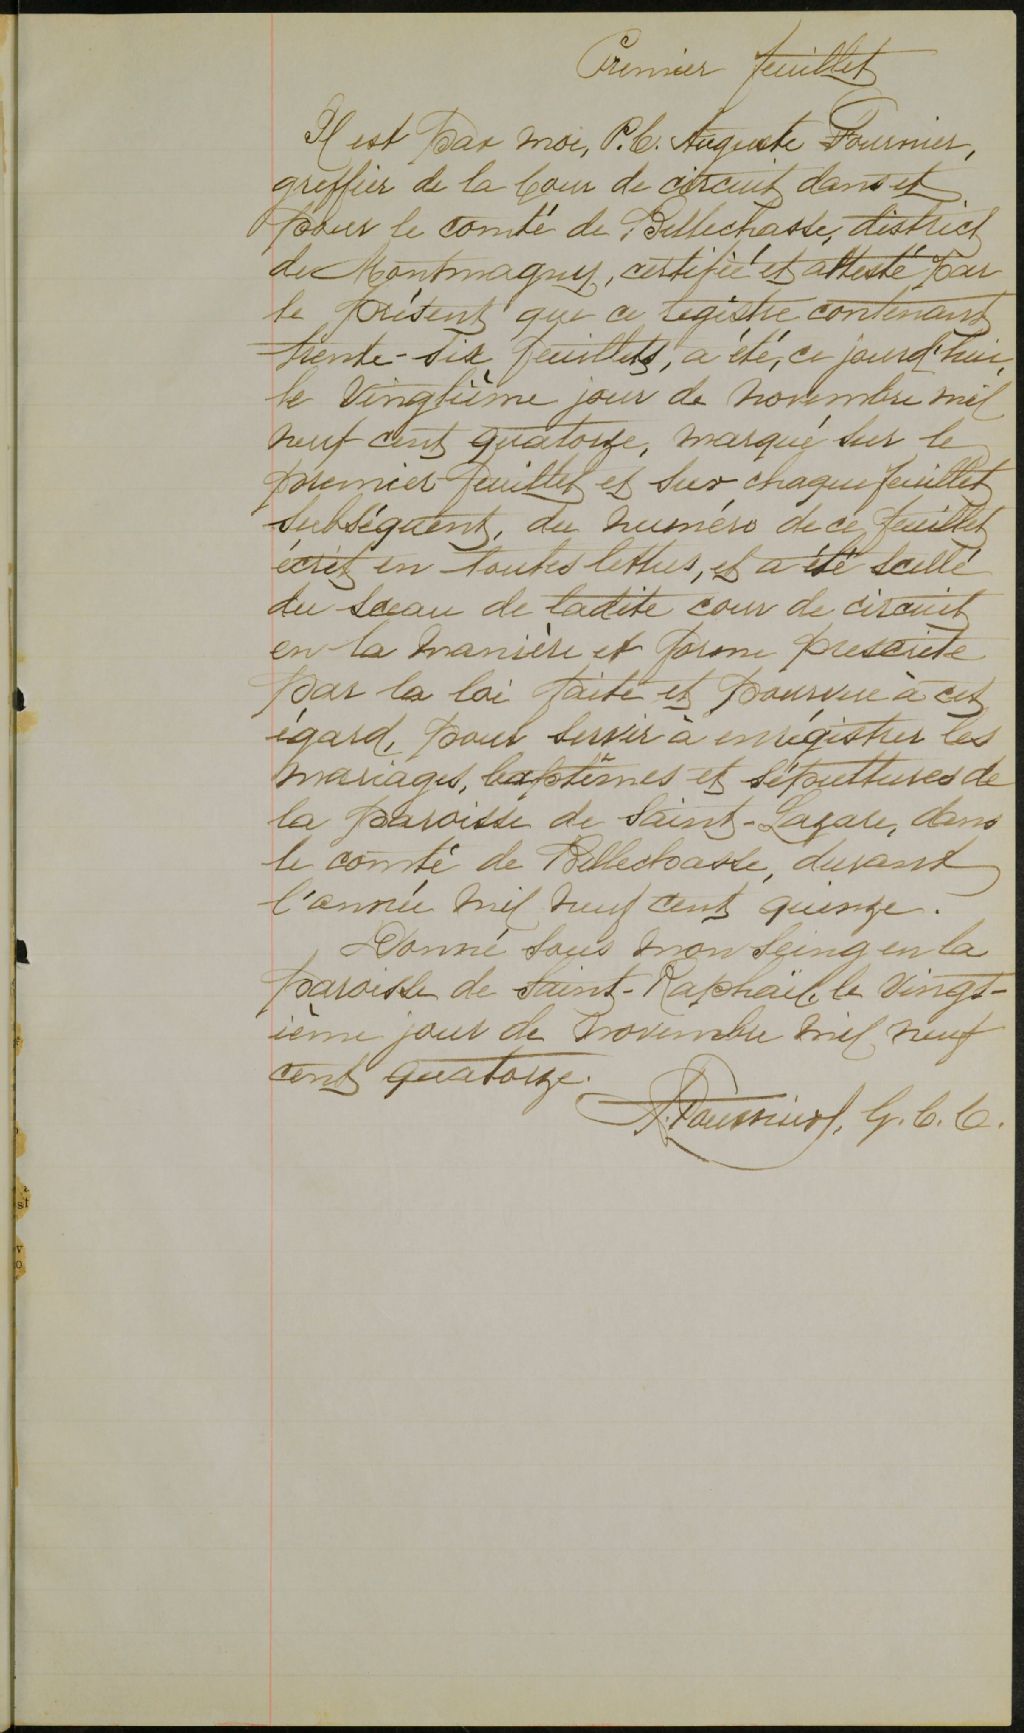 Premier feuillet
Il est par moi, P.C. Auguste Fournier,
greffier de la Cour de circuit dans et
pour le comté de Bellechasse, district
de Montmagny, certifié et attesté par
le présent que ce registre contenant
trente-six feuillets, a été, ce jourd'hui,
le vingtième jour de novembre mil
neuf cent quatorze, marqué sur le
premier feuillet et sur chaque feuillet
subséquent, du numéro de ce feuillet
écrit en toutes lettres, et a été scellé
du sceau de ladite cour de circuit
en la manière et forme prescrite
par la loi faite et pourvue à cet
égard, pour servir à enrégistrer les
mariages, baptêmes et sépultures de
la paroisse de Saint-Lazare, dans
le comté de Bellechasse, durant
l'année mil neuf cent quinze.
Donné sous mon seing en la
paroisse de Saint-Raphaël, le vingt-
ième jour de novembre mil neuf
cent quatorze.
A. Fournier, G. C. C.